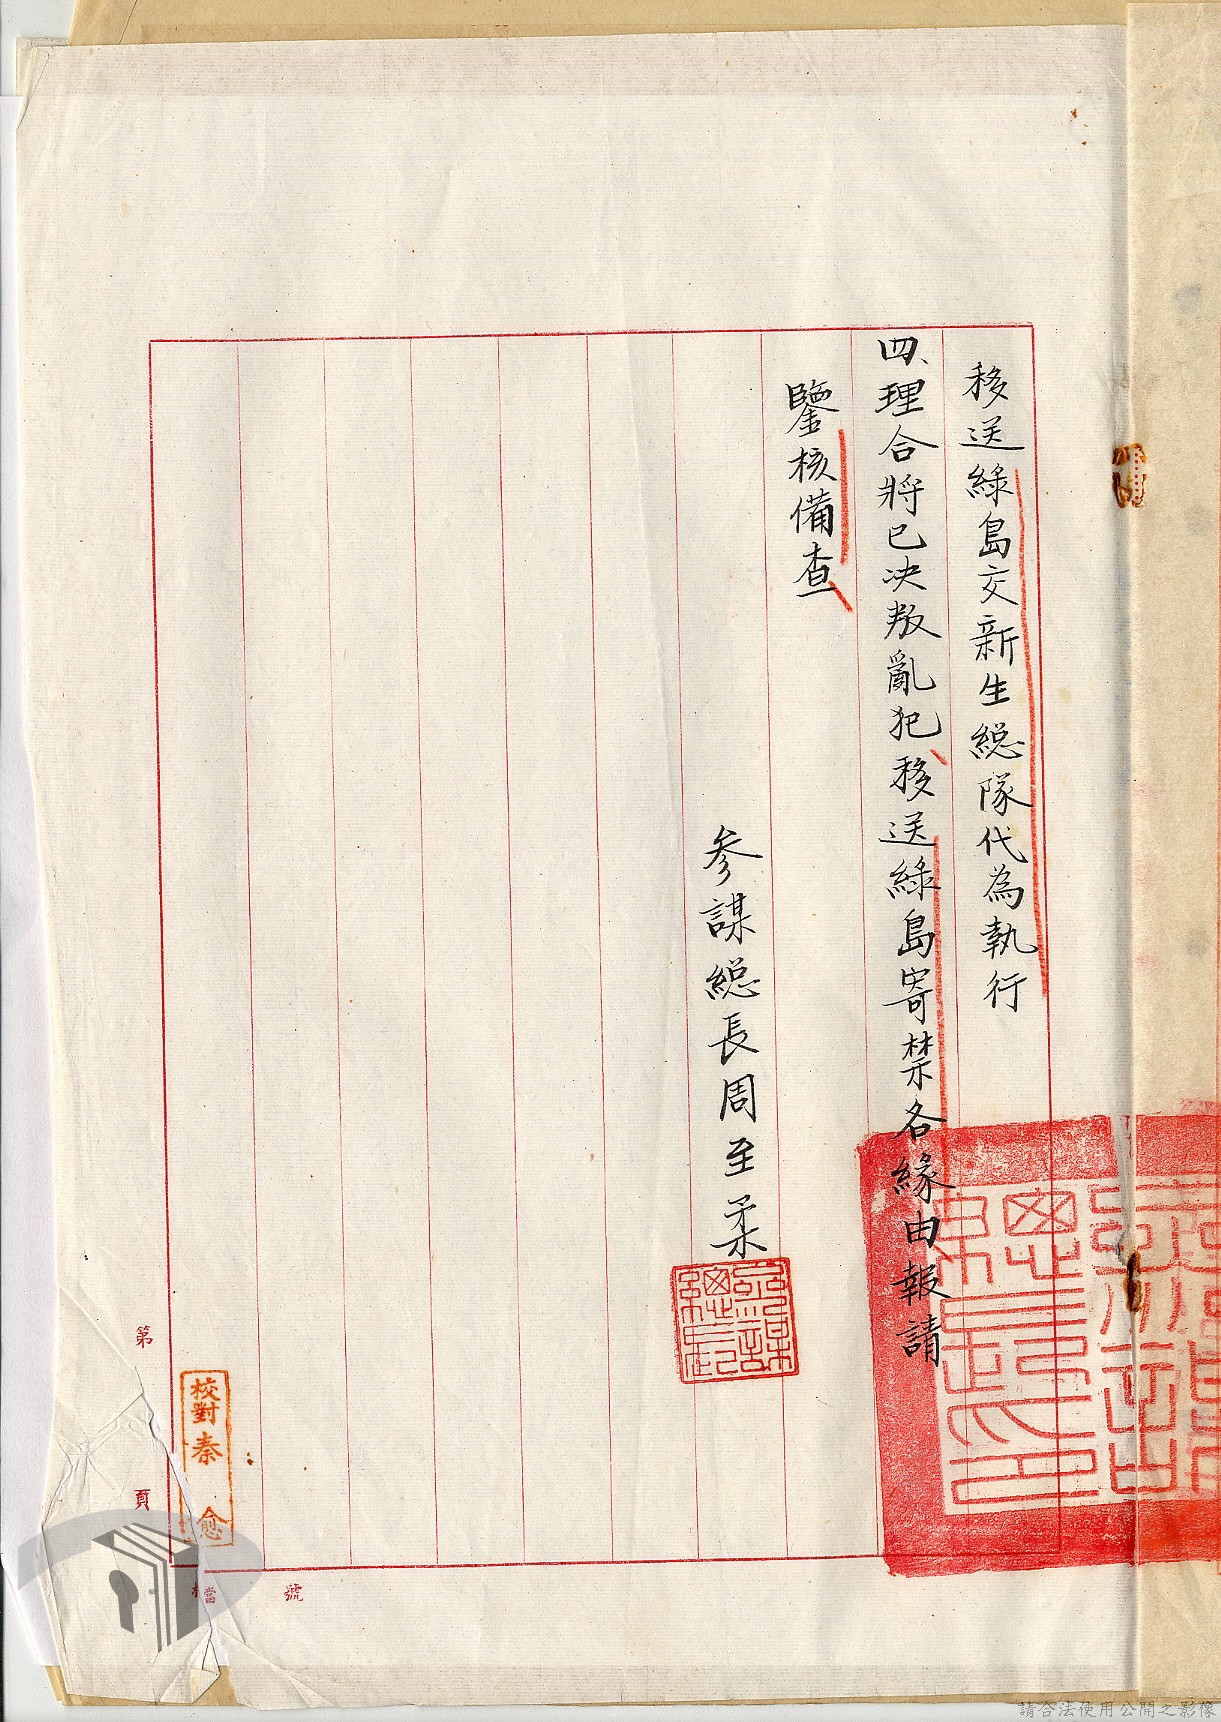 移送綠島交新生緫隊代為執行
四、理合將已决叛亂犯移送綠島寄禁各緣由報請
鑒核備查
參謀緫長周至柔
參謀
總長
校對秦愈
第
頁
檔
號
請合法使用公開之影像